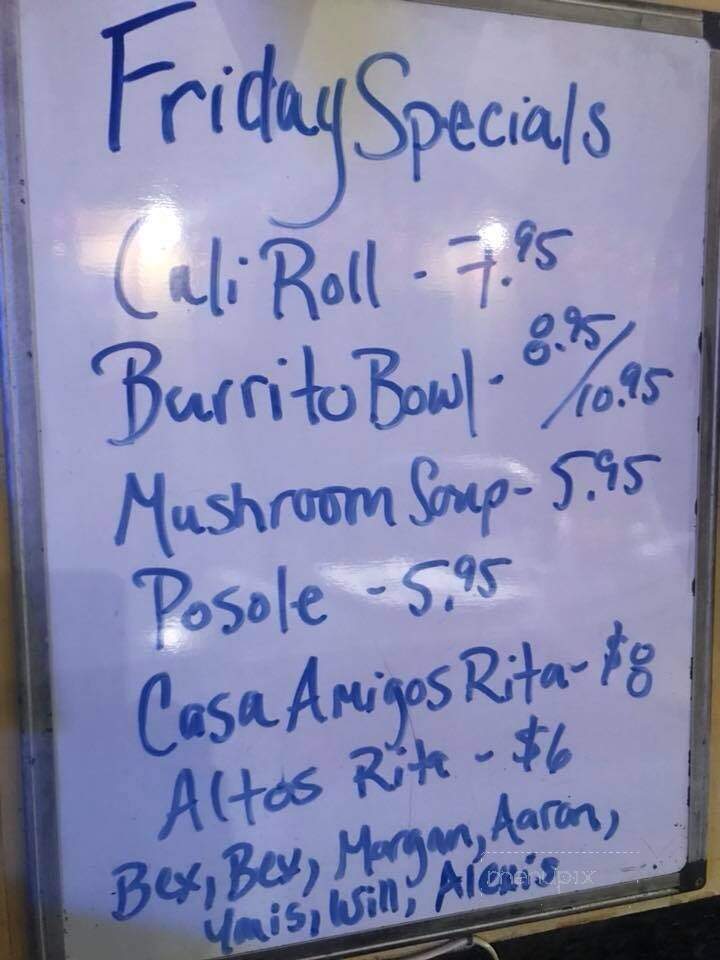 Friday Specials
Cali Roll - 7.95
Burrito Bowl - 8.95/10.95
Mushroom Soup - 5.95
Posole - 5.95
Casa Amigos Rita - $8
Altos Rita - $6
Bex, Bev, Morgan, Aaron,
Ymis, Will, Alexis
menupix